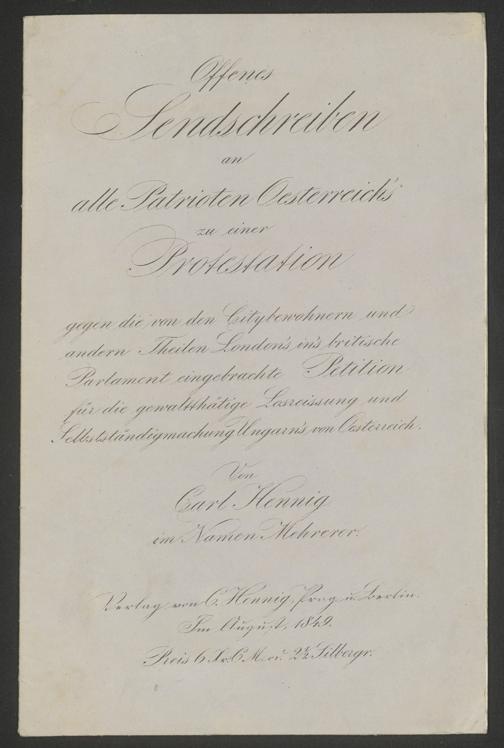 Offenes
Sendschreiben
an
alle Patrioten Oesterreich's
zu einer
Protestation
gegen die von den Citybewohnern und
andern Theilen London's, in's britische
Parlament eingebrachte Petition
für die gewaltthätige Losreissung und
Selbstständigmachung Ungarn's von Oesterreich.
Von
Carl Hennig
im Namen Mehrerer.
Verlag von C. Hennig, Prag u. Berlin.
Im August, 1849.
Preis 6 Xr. C.M. od. 2½ Silbergr.